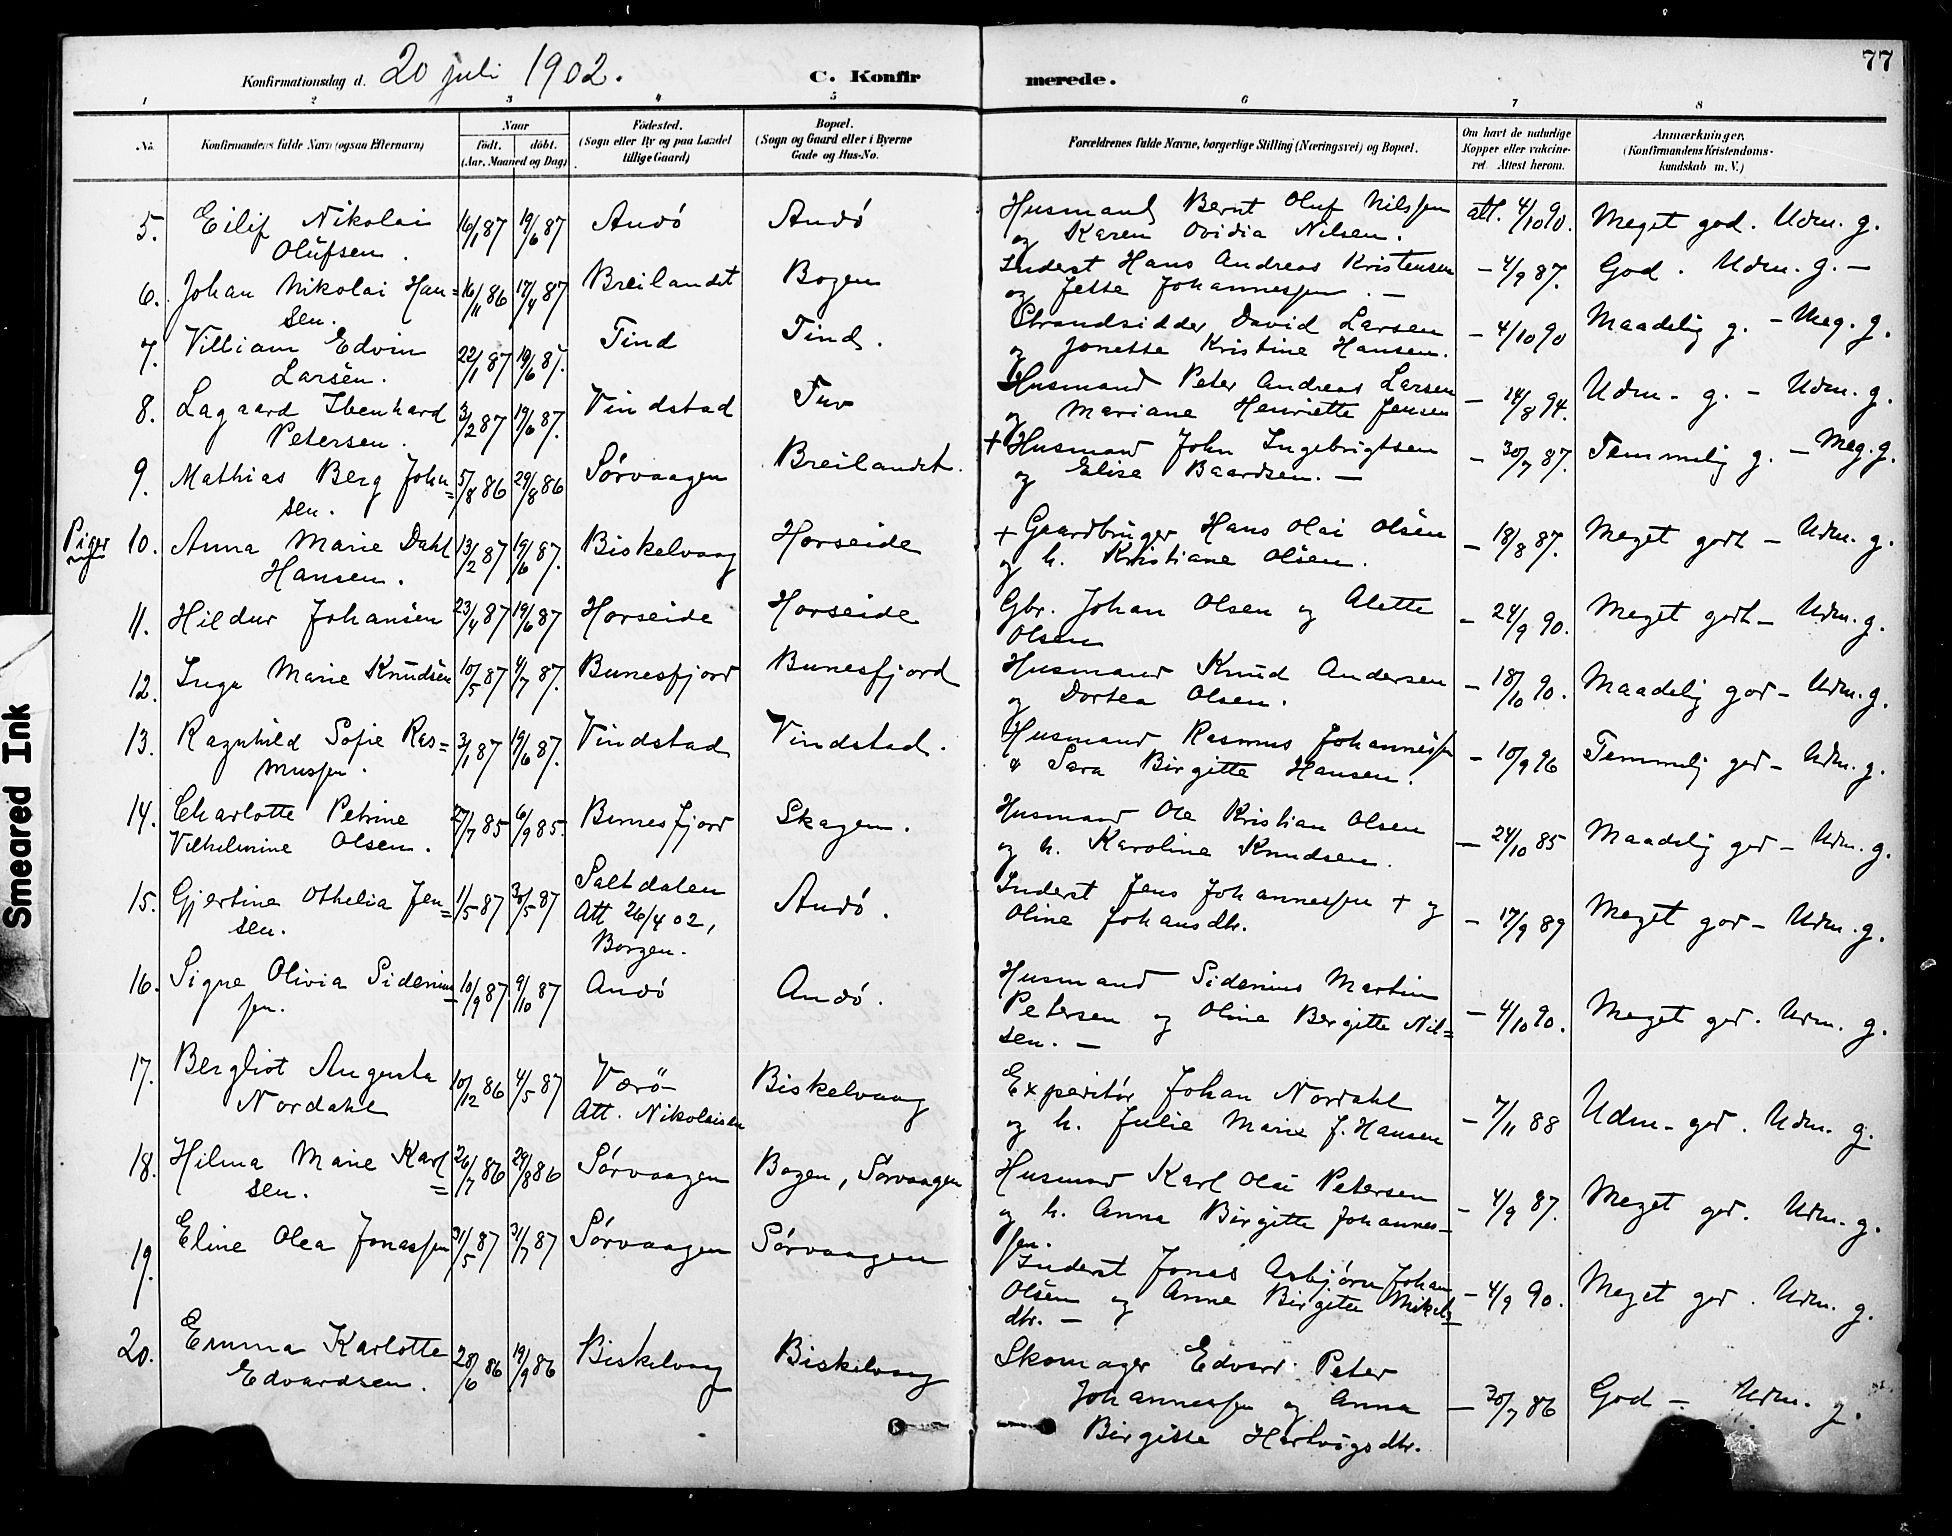 77
Konfirmationsdag d. 20 juli 1902.
C. Konfir merede.
1 2 3 4 5 6 7 8
No.
Konfirmandens fulde Navn (ogsaa Efternavn)
Naar
født. døbt.
(Aar, Maaned og Dag)
Fødested.
(Sogn eller By og paa Landet
tillige Gaard)
Bopæl.
(Sogn og Gaard eller i Byerne
Gade og Hus-No.
Forældrenes fulde Navne, borgerlige Stilling (Næringsvei) og Bopæl.
Om havt de naturlige
Kopper eller vakcine-
ret Attest herom.
Anmærkninger,
(Konfirmandens Kristendoms-
kundskab m. V.)
5. Eilif Nikolai 16/1 87 19/6 87 Andö Andö Husmand Bernt Oluf Nilssen att. 4/10 90. Meget god. Udm. g.
Olufsen. og Karen Ovidia Nilsen.
6. Johan Nikolai Han= 16/11 86 17/4 87 Breilandet Bogen Inderst Hans Andreas Kristensen – 4/9 87. God. Udm. g. –
sen. og Jette Johannessen. –
7. Villiam Edvin 22/1 87 19/6 87. Tind Tind. Strandsidder David Larsen – 4/10 90 Maadelig g. – Meg. g.
Larsen. og Jonette Kristine Hansen.
8. Lagaard Ibenhard 3/2 87 19/6 87. Vindstad Tuv Husmand Peter Andreas Larsen – 14/8 94. Udm. g. – Udm. g.
Petersen. og Mariane Henriette Jensen
9. Mathias Berg John= 5/8 86 29/8 86 Sørvaagen Breilandet. + Husmand John Ingebrigtsen – 30/7 87. Temmelig g. – Meg. g.
sen. og Elise Baardsen. –
Piger
10. Anna Marie Dahl 13/2 87 19/6 87. Biskelvaag Horseide + Gaardbruger Hans Olai Olsen – 18/8 87. Meget godt – Udm. g.
Hansen. og h. Kristiane Olsen.
11. Hildur Johansen 23/4 87 19/6 87 Horseide Horseide Gbr. Johan Olsen og Alette – 24/9 90. Meget godt – Udm. g.
Olsen
12. Inga Marie Knudsen 10/5 87 4/7 87. Bunesfjord Bunesfjord Husmand Knud Andersen – 18/10 90. Maadelig god – Udm. g.
og Dortea Olsen.
13. Ragnhild Sofie Ras= 3/1 87 19/6 87. Vindstad Vindstad. Husmand Rasmus Johannessen – 10/9 96 Temmelig god – Udm. g.
mussen. " Sara Birgitte Hansen.
14. Charlotte Petrine 27/7 85 6/9 85. Bunesfjord Skagen. Husmand Ole Kristian Olsen – 24/10 85 Maadelig god – Udm. g.
Vilhelmine Olsen. og h. Karoline Knudsen.
15. Gjertine Othelia Jen= 1/5 87 30/5 87 Saltdalen Andö. Inderst Jens Johannessen + og – 17/9 89 Meget god – Udm. g.
sen. Att 26/4 02, Oline Johansdtr.
Borgen.
16. Signe Olivia Sidenius= 10/9 87 9/10 87 Andö Andö. Husmand Sidenius Martin – 4/10 90. Meget god. Udm. g.
sen. Petersen og Oline Bergitte Nil=
sen. –
17. Bergliot Augusta 10/12 86 4/5 87 Værö Biskelvaag Expeditör Johan Nordahl – 7/11 88 Udm. god. Udm. g.
Nordahl Att. Nikolaisen og h. Julie Marie J. Hansen
18. Hilma Marie Karl= 26/7 86 29/8 86 Sørvaagen Bogen, Sørvaagen Husmand Karl Olai Petersen – 4/9 87. Meget god. Udm. g.
sen. og h. Anna Birgitte Johannes=
sen.
19. Eline Olea Jonassen 31/5 87 31/7 87 Sørvaagen Sørvaagen Inderst Jonas Asbjørn Johan – 4/9 90. Meget god. Udm. g.
Olsen og Anne Birgitte Mikels=
dtr. –
20. Emma Karlotte 28/6 86 19/9 86 Biskelvaag Biskelvaag Skomager Edvard Peter – 30/7 86 God – Udm. g.
Edvardsen. Johannessen og Anna
Birgitte Hartvigsdtr.
Smeared Ink